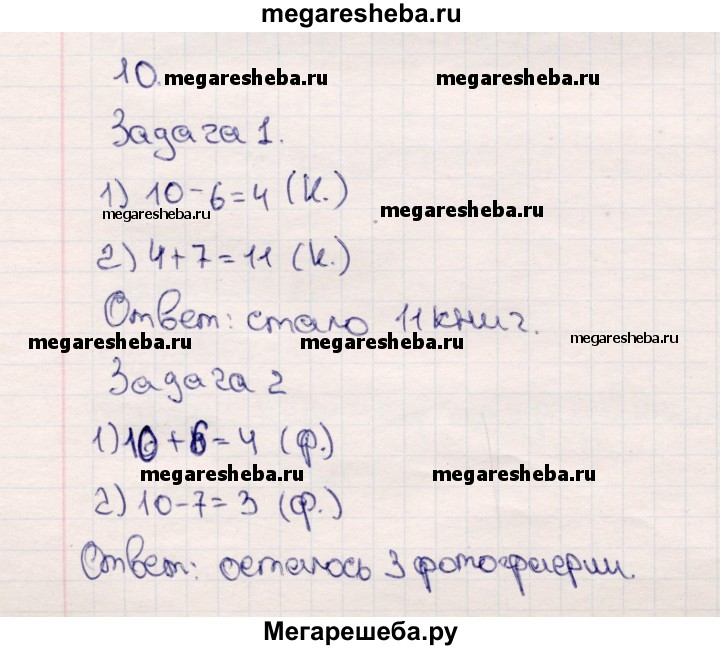 megaresheba.ru
10.
megaresheba.ru megaresheba.ru
Задача 1.
1) 10-6=4 (к.)
megaresheba.ru megaresheba.ru
2) 4+7=11 (к.)
Ответ: стало 11 книг.
megaresheba.ru megaresheba.ru megaresheba.ru
Задача 2
1) 10+6=4 (ф.)
megaresheba.ru megaresheba.ru
2) 10-7=3 (ф.)
Ответ: осталось 3 фотографии.
Мегарешеба.ру